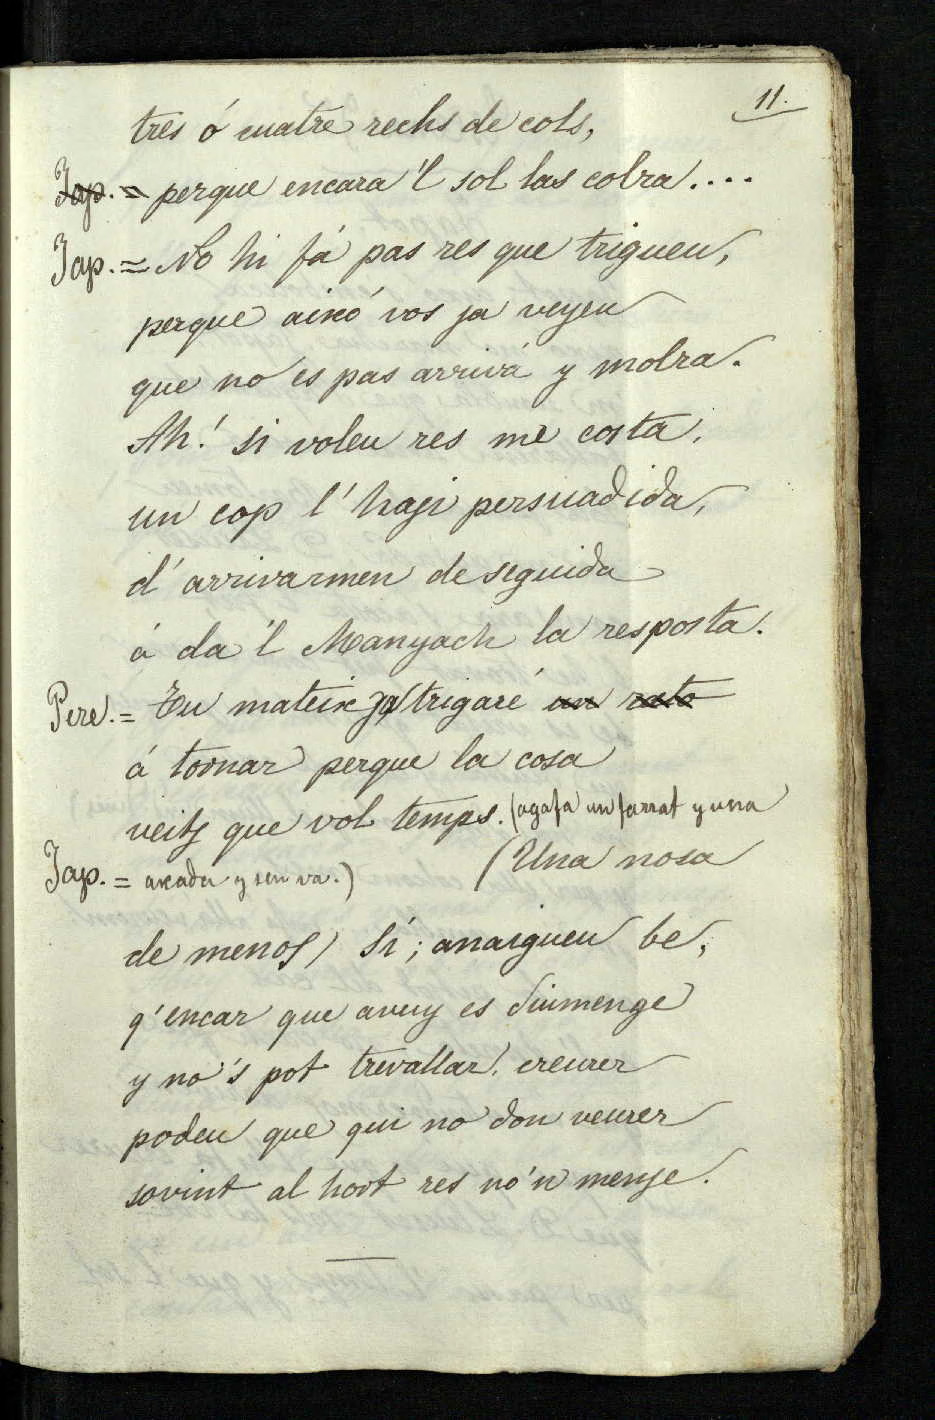 11.
tres ó cuatre rechs de cols,
Jap. = perque encara 'l sol las colra....
Jap. = No hi fá pas res que trigueu,
perque aixó vos ja veyeu
que no es pas arrivá y molra.
Ah! si voleu res me costa,
un cop l' hagi persuadida,
d' arrivarmen de seguida
á da 'l Manyach la resposta.
Pere. = Tu mateix ja trigaré un rato
á tornar perque la cosa
veitj que vol temps. (agafa un farrat y una
Jap. = axada y sen va.) (Una nosa
de menos) Sí; anaigueu be,
q' encar que avuy es diumenge
y no 's pot trevallar, creurer
podeu que qui no don veurer
sovint al hort res no 'n menje.